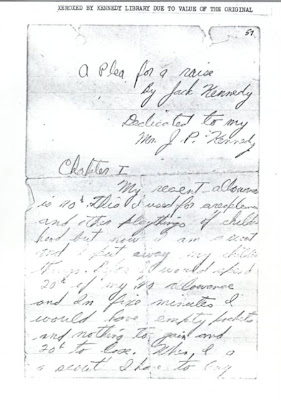 XEROXED BY KENNEDY LIBRARY DUE TO VALUE OF THE ORIGINAL
A Plea for a raise
By Jack Kennedy
Dedicated to my
Mr. J. P. Kennedy
Chapter I
My recent allowance
is 40¢. This I used for areoplanes
and other playthings of childhood
hood but now I am a scout
and I put away my childish
things. Before I would spend
20¢ of my 40¢ allowance
and In five minutes I
would have empty pockets
and nothing to gain and
20¢ to lose. When I a
a scout I have to buy